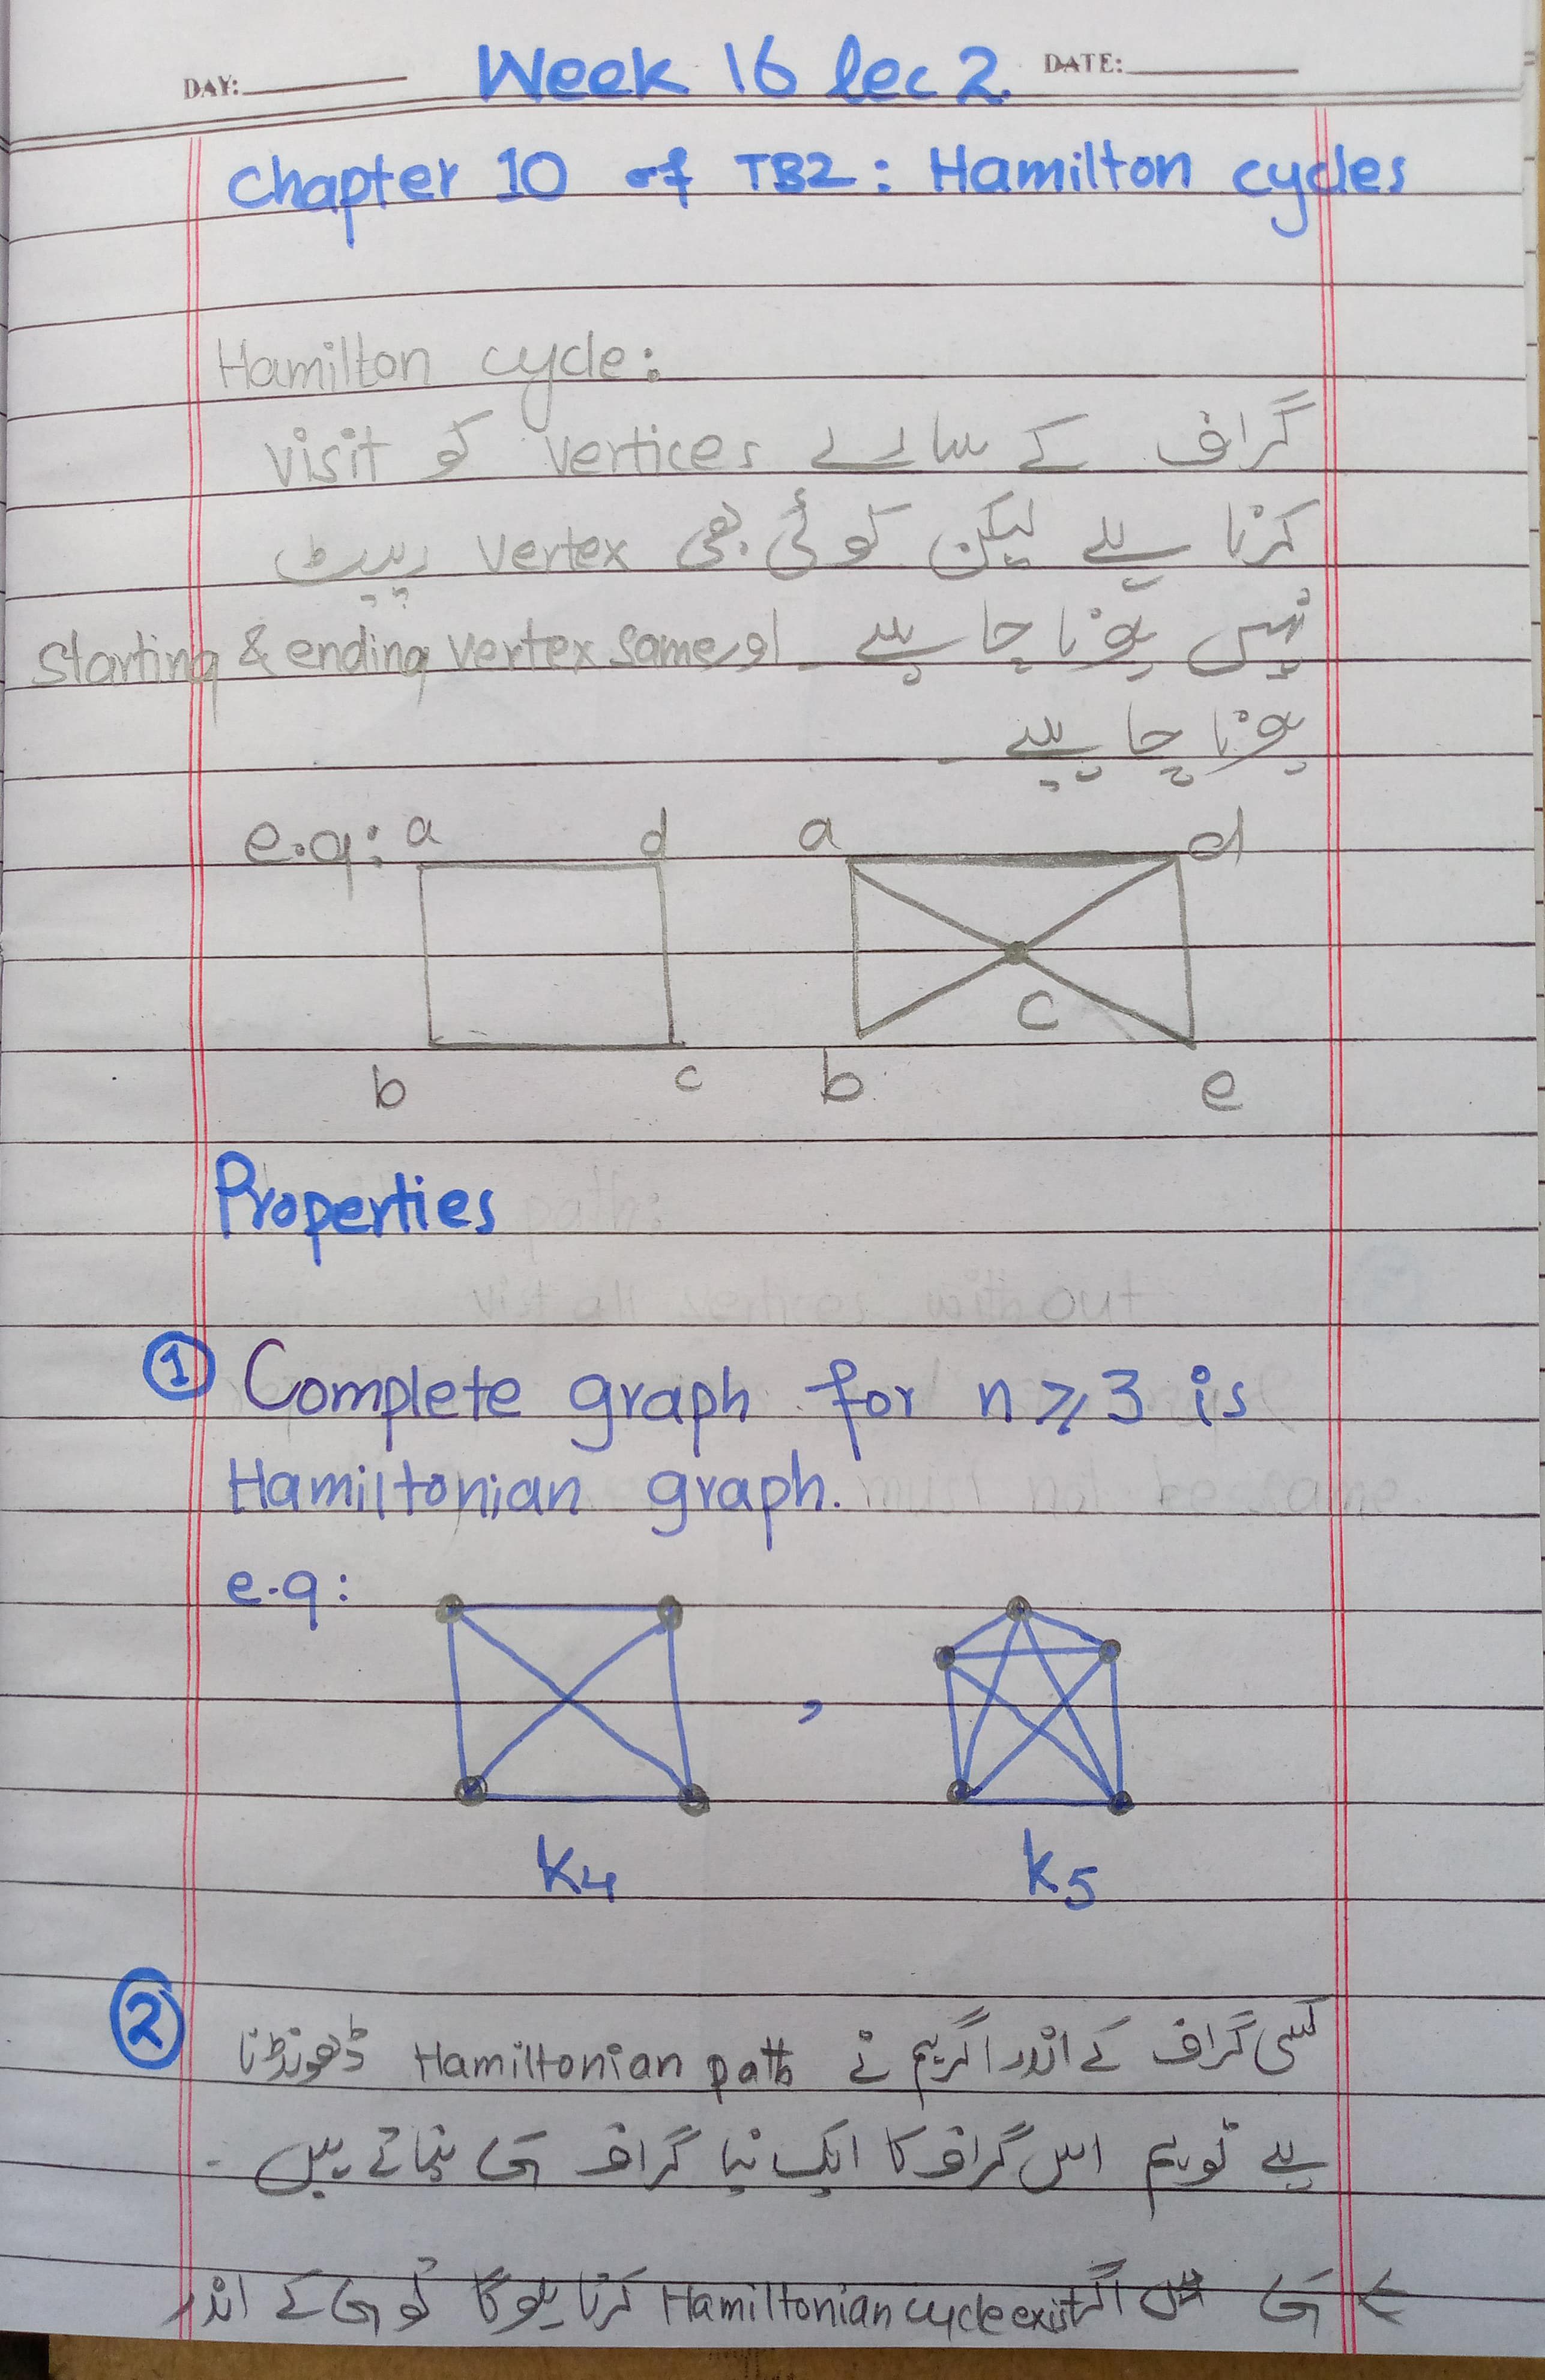 DAY: Week 16 lec 2. DATE:
Chapter 10 of TB2: Hamilton cycles
Hamilton cycle:
گراف کے سارے vertices کو visit
کرنا ہے لیکن کوئی بھی vertex ریپیٹ
نہیں ہونا چاہیے۔ اور starting & ending vertex same
ہونا چاہیے۔
e.g: a d a d
c
b c b e
Properties
① Complete graph for n ⩾ 3 is
Hamiltonian graph.
e.g:
,
K4 K5
② کسی گراف کے اندر اگر ہم نے Hamiltonian path ڈھونڈنا
ہے تو ہم اس گراف کا ایک نیا گراف بناتے ہیں۔
اگر Hamiltonian cycle exist کرتا ہوگا تو کے اندر